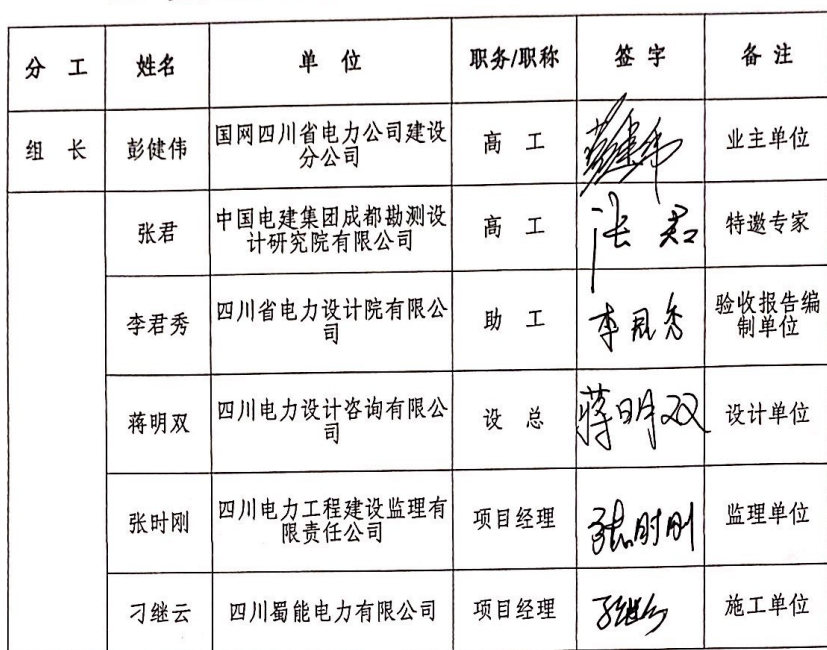 分 工 姓名 单 位 职务/职称 签 字 备 注
组 长 彭健伟 国网四川省电力公司建设
分公司 高 工 彭健伟 业主单位
张君 中国电建集团成都勘测设
计研究院有限公司 高 工 张君 特邀专家
李君秀 四川省电力设计院有限公
司 助 工 李君秀 验收报告编
制单位
蒋明双 四川电力设计咨询有限公
司 设 总 蒋明双 设计单位
张时刚 四川电力工程建设监理有
限责任公司 项目经理 张时刚 监理单位
刁继云 四川蜀能电力有限公司 项目经理 刁继云 施工单位